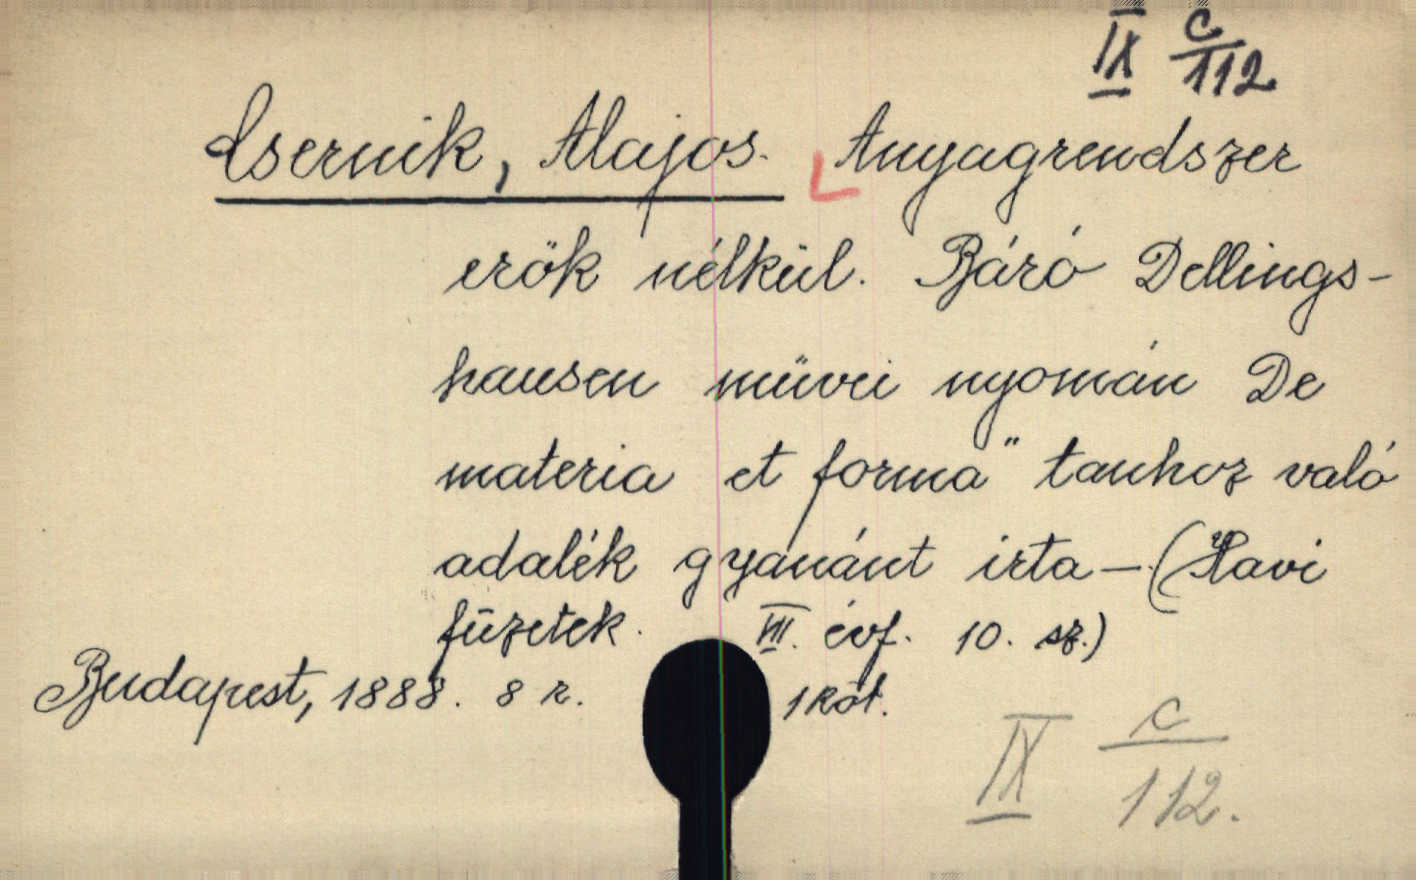 IX c/112
Csernik, Alajos. Anyagrendszer
erők nélkül. Báró Dellings-
hausen művei nyomán De
materia et forma" tanhoz való
adalék gyanánt irta — (Havi
füzetek. VII. évf. 10. sz.)
Budapest, 1888. 8 r. 1 köt.
IX c/112.